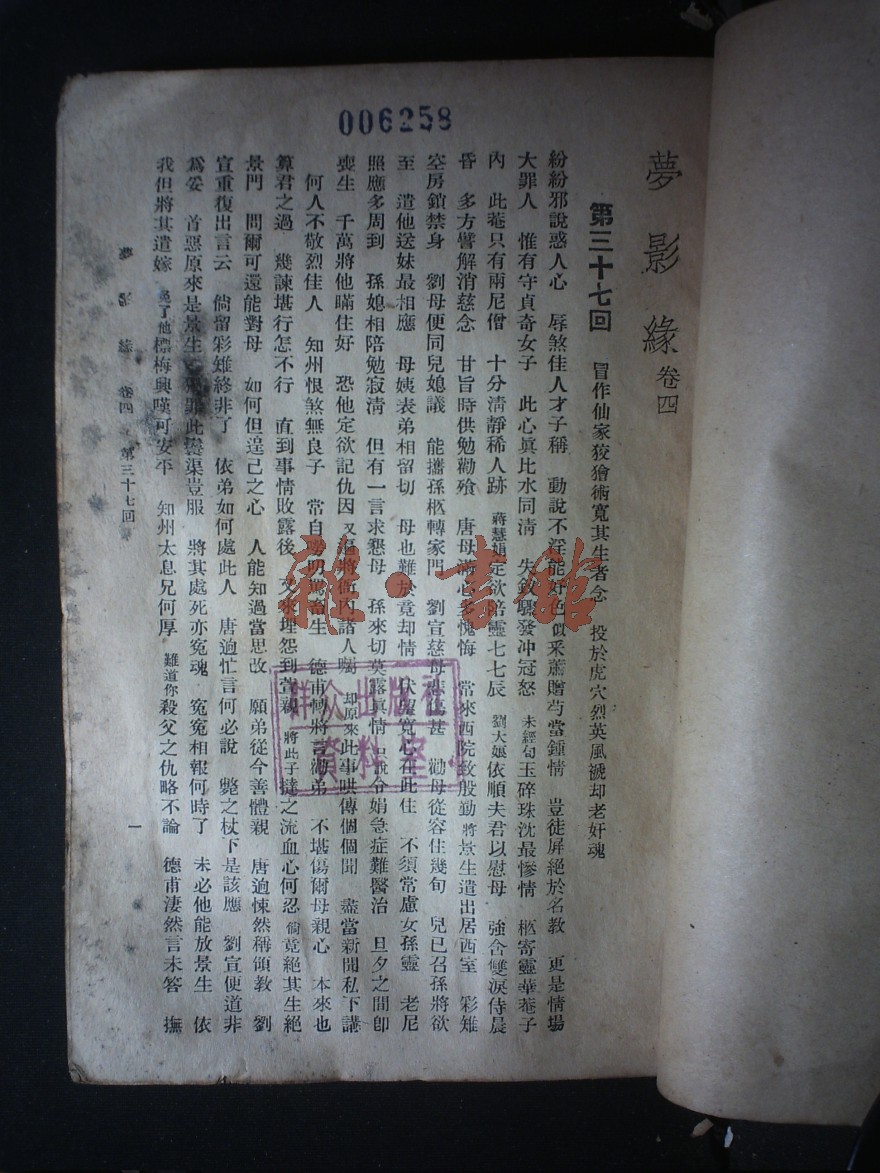 006258
夢影緣 卷四
第三十七回 冒作仙家狡獪術寬其生者念 投於虎穴烈英風褫却老奸魂
紛紛邪說惑人心 辱煞佳人才子稱 動說不淫能好色 似采蘭贈芍當鍾情 豈徒屏絕於名教 更是情場
大罪人 惟有守貞奇女子 此心眞比水同淸 失釵驟發冲冠怒 未經旬玉碎珠沈最慘情 柩寄靈華菴子
內 此菴只有兩尼僧 十分淸靜稀人跡 蔣慧娟定欲陪靈七七辰 劉大娘依順夫君以慰母 強含雙淚侍晨
昏 多方譬解消慈念 甘旨時供勉勸飱 唐母心多愧悔 常來西院致殷勤 將景生遣出居西室 彩雉
空房鎖禁身 劉母便同兒媳議 能攜孫柩轉家門 劉宣慈母悲傷甚 勸母從容住幾旬 兒已召孫將欲
至 遣他送妹最相應 母姨表弟相留切 母也難於竟却情 伏望寬心在此住 不須常慮女孫靈 老尼
照應多周到 孫媳相陪勉寂淸 但有一言求懇母 孫來切莫露眞情 只說令娟急症難醫治 旦夕之間卽
喪生 千萬將他瞞住好 恐他定欲記仇因 又將衙內諸人囑 却原來此事哄傳個個聞 盡當新聞私下講
何人不敬烈佳人 知州恨煞無良子 常自罵畜生 德甫轉將言勸弟 不堪傷爾母親心 本來也
算君之過 幾諫堪行怎不行 直到事情敗露後 又來埋怨到萱親 將此子撻之流血心何忍 倘竟絕其生絕
景門 問爾可還能對母 如何但逞己之心 人能知過當思改 願弟從今善體親 唐逈悚然稱領教 劉
宣重復出言云 倘留彩雉終非了 依弟如何處此人 唐逈忙言何必說 斃之杖下是該應 劉宣便道非
爲妥 首惡原來是景生 罪此鬟渠豈服 將其處死亦冤魂 冤冤相報何時了 未必他能放景生 依
我但將其遣嫁 免了他標梅興嘆可安平 知州太息兄何厚 難道你殺父之仇略不論 德甫淒然言未答 撫
夢影緣 卷四 第三十七回 一
雜·書館
群众出版社
資料室